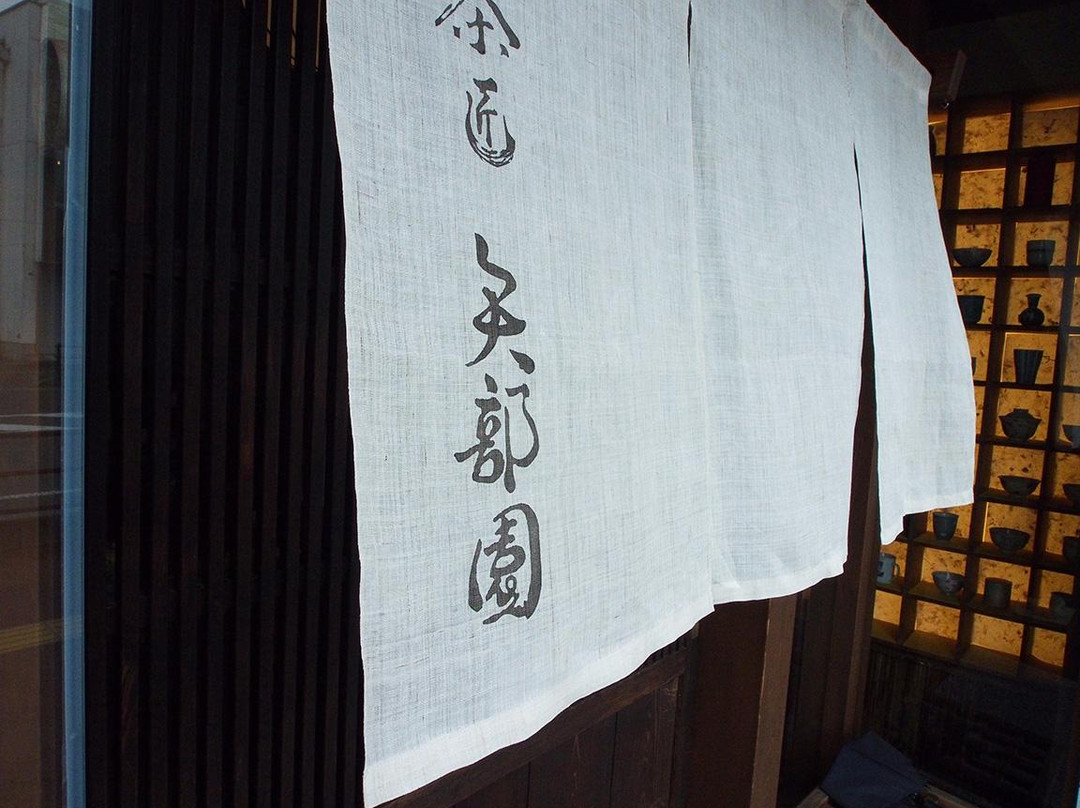 茶匠 矢部園